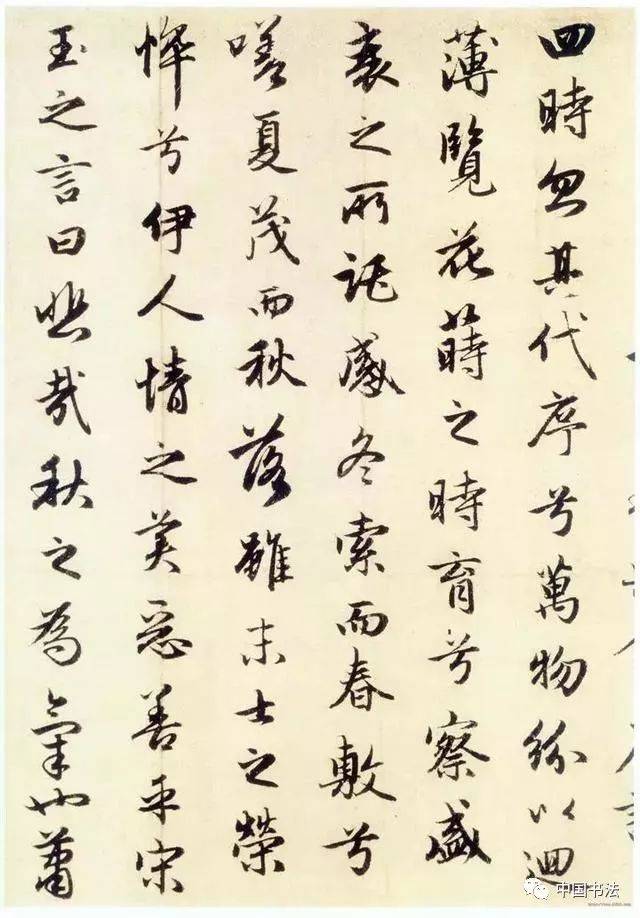 四時忽其代序兮萬物紛以迴
薄覽花蒔之時育兮察盛
衰之所託感冬索而春敷兮
嗟夏茂而秋落雖末士之榮
悴兮伊人情之美惡善乎宋
玉之言曰悲哉秋之為氣也蕭
中国书法